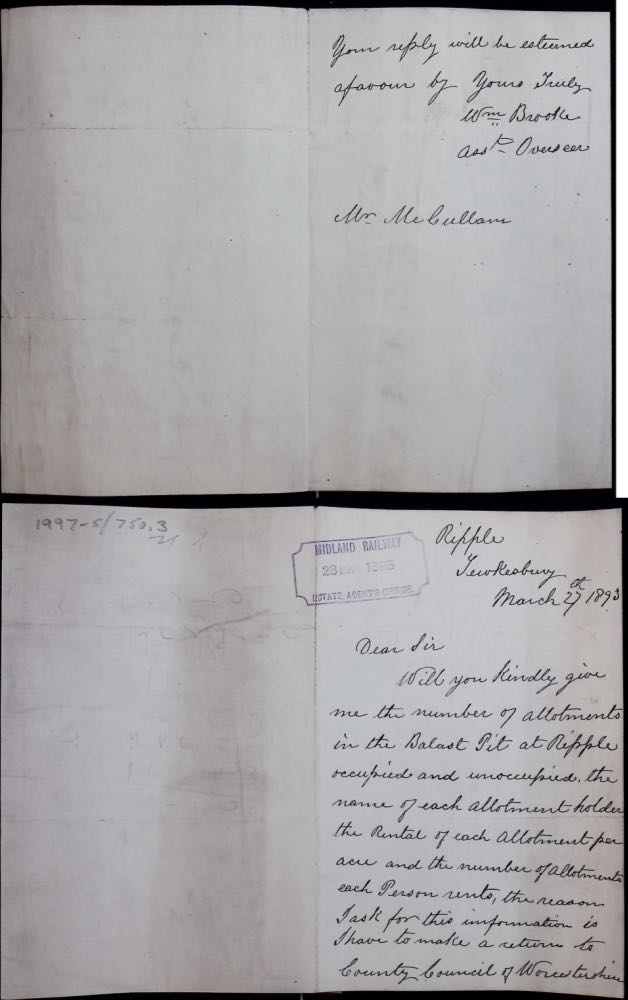 Your reply will be esteemed
afavour by Yours Truly
Wm Brooke
Asst Overseer
Mr McCullam
1997-5/750.3
MIDLAND RAILWAY
28 MAR 1893
ESTATE AGENT'S OFFICE
Ripple
Tewkesbury
March 27th 1893
Dear Sir
Will you Kindly give
me the number of allotments
in the Balast Pit at Ripple
occupied and unoccupied, the
name of each Allotment holder
the Rental of each Allotment per
acre and the number of Allotments
each Person rents, the reason
I ask for this information is
I have to make a return to
County Council of Worcestershire